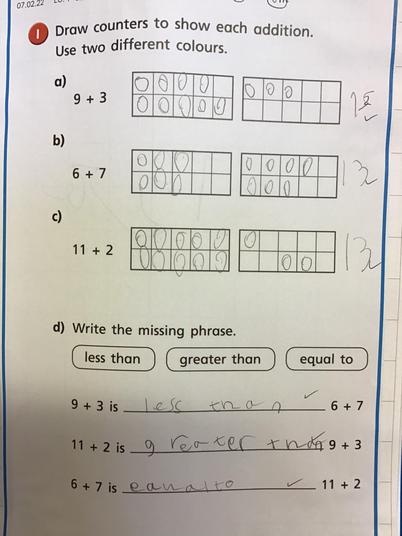 07.02.22
1 Draw counters to show each addition.
Use two different colours.
a)
9 + 3
b)
6 + 7
13
c)
11 + 2
13
d) Write the missing phrase.
less than greater than equal to
9 + 3 is less than 6 + 7
11 + 2 is greater than 9 + 3
6 + 7 is eanalto 11 + 2